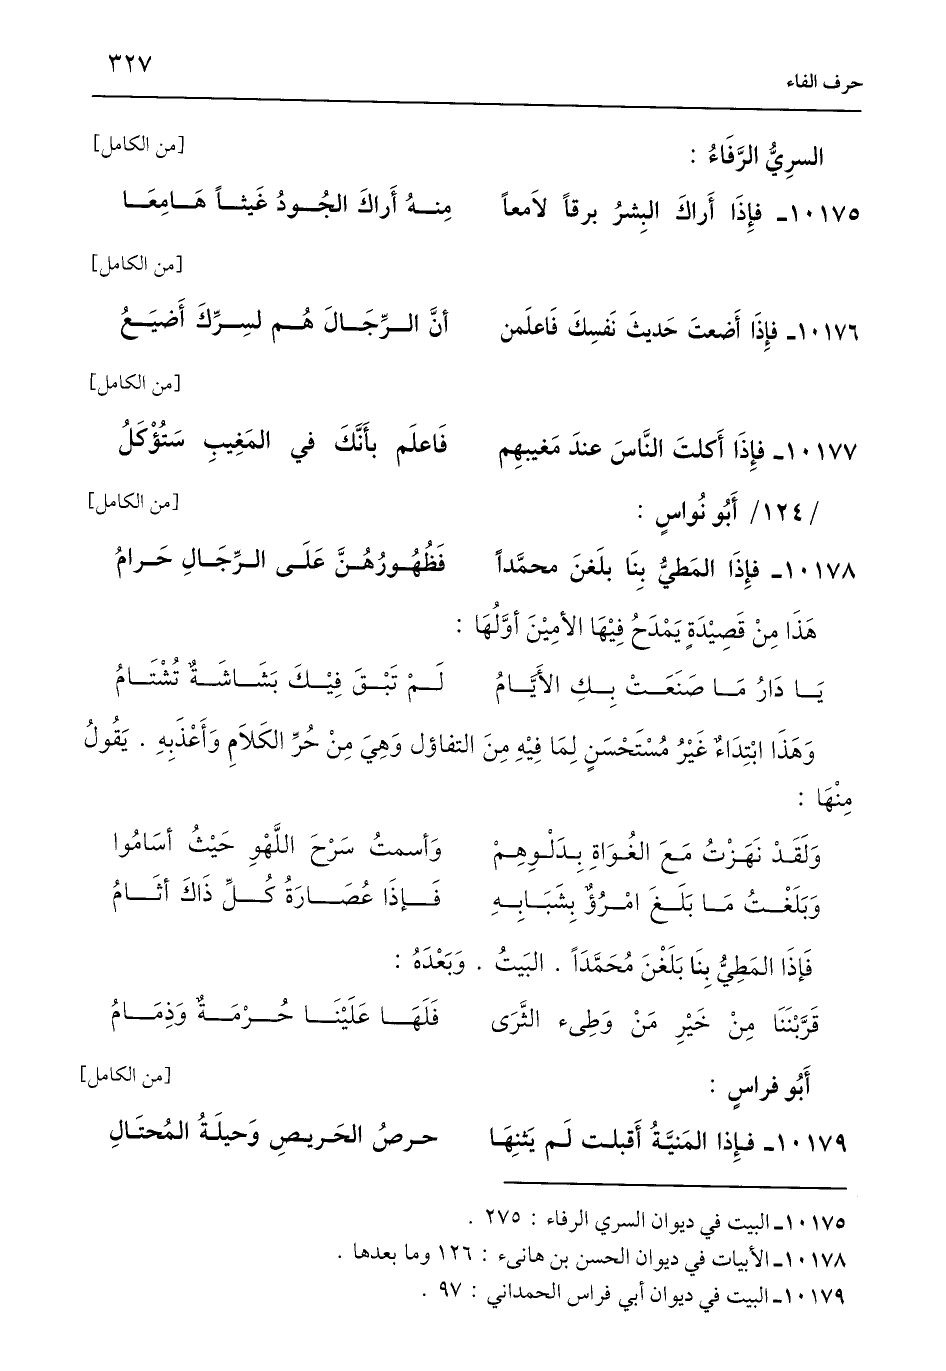 ٣٢٧
حرف الفاء
السرِيُّ الرَّفَاءُ : [من الكامل]
١٠١٧٥ـ فإِذَا أَراكَ البِشرُ برقاً لاَمعاً منهُ أَراكَ الجُودُ غَيثاً هَامِعَا
[من الكامل]
١٠١٧٦ـ فإِذَا أَضعتَ حَديثَ نَفسِكَ فَاعلَمن أنَّ الرِّجَالَ هُم لسِرِّكَ أَضيَعُ
[من الكامل]
١٠١٧٧ـ فإِذَا أَكلتَ النَّاسَ عندَ مَغيبِهِم فَاعلَم بأَنَّكَ في المَغِيبِ سَتُؤْكَلُ
/١٢٤/ أَبُو نُواسٍ : [من الكامل]
١٠١٧٨ـ فإِذَا المَطيُّ بِنَا بلَغنَ محمَّداً فَظُهُورُهُنَّ عَلَى الرِّجَالِ حَرامُ
هَذَا مِنْ قَصِيْدَةٍ يَمْدَحُ فِيْهَا الأمِيْنَ أوَّلُهَا :
يَا دَارُ مَا صَنَعَتْ بِكِ الأيَّامُ لَمْ تَبْقَ فِيْكَ بَشَاشَةٌ تُشْتَامُ
وَهَذَا ابْتِدَاءٌ غَيْرُ مُسْتَحْسَنٍ لِمَا فِيْهِ مِنَ التفاؤل وَهِيَ مِنْ حُرِّ الكَلاَمِ وَأَعْذَبِهِ . يَقُولُ
مِنْهَا :
وَلَقَدْ نَهَزْتُ مَعَ الغُوَاةِ بِدَلْوِهِمْ وَأسمتُ سَرْحَ اللَّهْوِ حَيْثُ أسَامُوا
وَبَلَغْتُ مَا بَلَغَ امْرُؤٌ بِشَبَابِهِ فَإذَا عُصَارَةُ كُلِّ ذَاكَ أثَامُ
فَإذَا المَطِيُّ بِنَا بَلَغْنَ مُحَمَّدَاً . البَيتُ . وَبَعْدَهُ :
قَرَّبْنَنَا مِنْ خَيْرِ مَنْ وَطِىء الثَّرَى فَلَهَا عَلَيْنَا حُرْمَةٌ وَذِمَامُ
أَبُو فراسٍ : [من الكامل]
١٠١٧٩ـ فإِذا المَنيَّةُ أَقبلت لَم يَثنِهَا حرصُ الحَريصِ وَحيلَةُ المُحتَالِ
١٠١٧٥ـ البيت في ديوان السري الرفاء : ٢٧٥ .
١٠١٧٨ـ الأبيات في ديوان الحسن بن هانىء : ١٢٦ وما بعدها .
١٠١٧٩ـ البيت في ديوان أبي فراس الحمداني : ٩٧ .